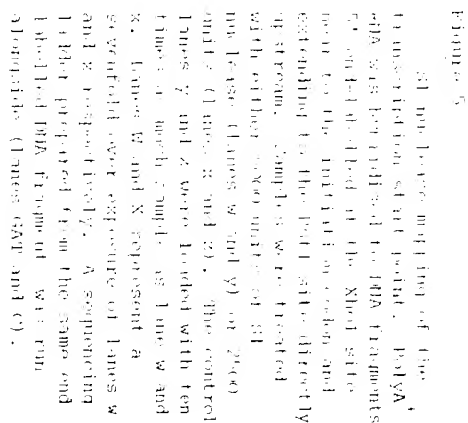 Figure 5
S1 nuclease mapping of the
transcription start point. PolyA+
RNA was hybridised to DNA fragments
5' endlabelled at the XhoI site
next to the initiation codon and
extending to the site directly
upstream. Samples were treated
with either units of S1
nuclease (lanes W and Y) or 2000
units (lanes X and Z). The control
lanes Y and Z were loaded with ten
times as much sample as lane W and
X. Lanes W and X represent a
sevenfold over exposure of lanes W
and X respectively. A sequencing
ladder prepared from the same end
labelled DNA fragment was run
alongside (lanes GAT and C).